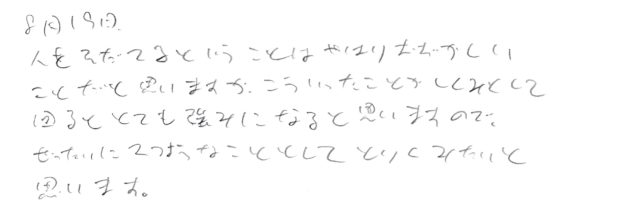 8月19日.
人をそだてるということはやはりむずかしい
ことだと思いますが、こういったことがしくみとして
回るととても強みになると思いますので、
ぜったいに　ようなこととしてとりくみたいと
思います。